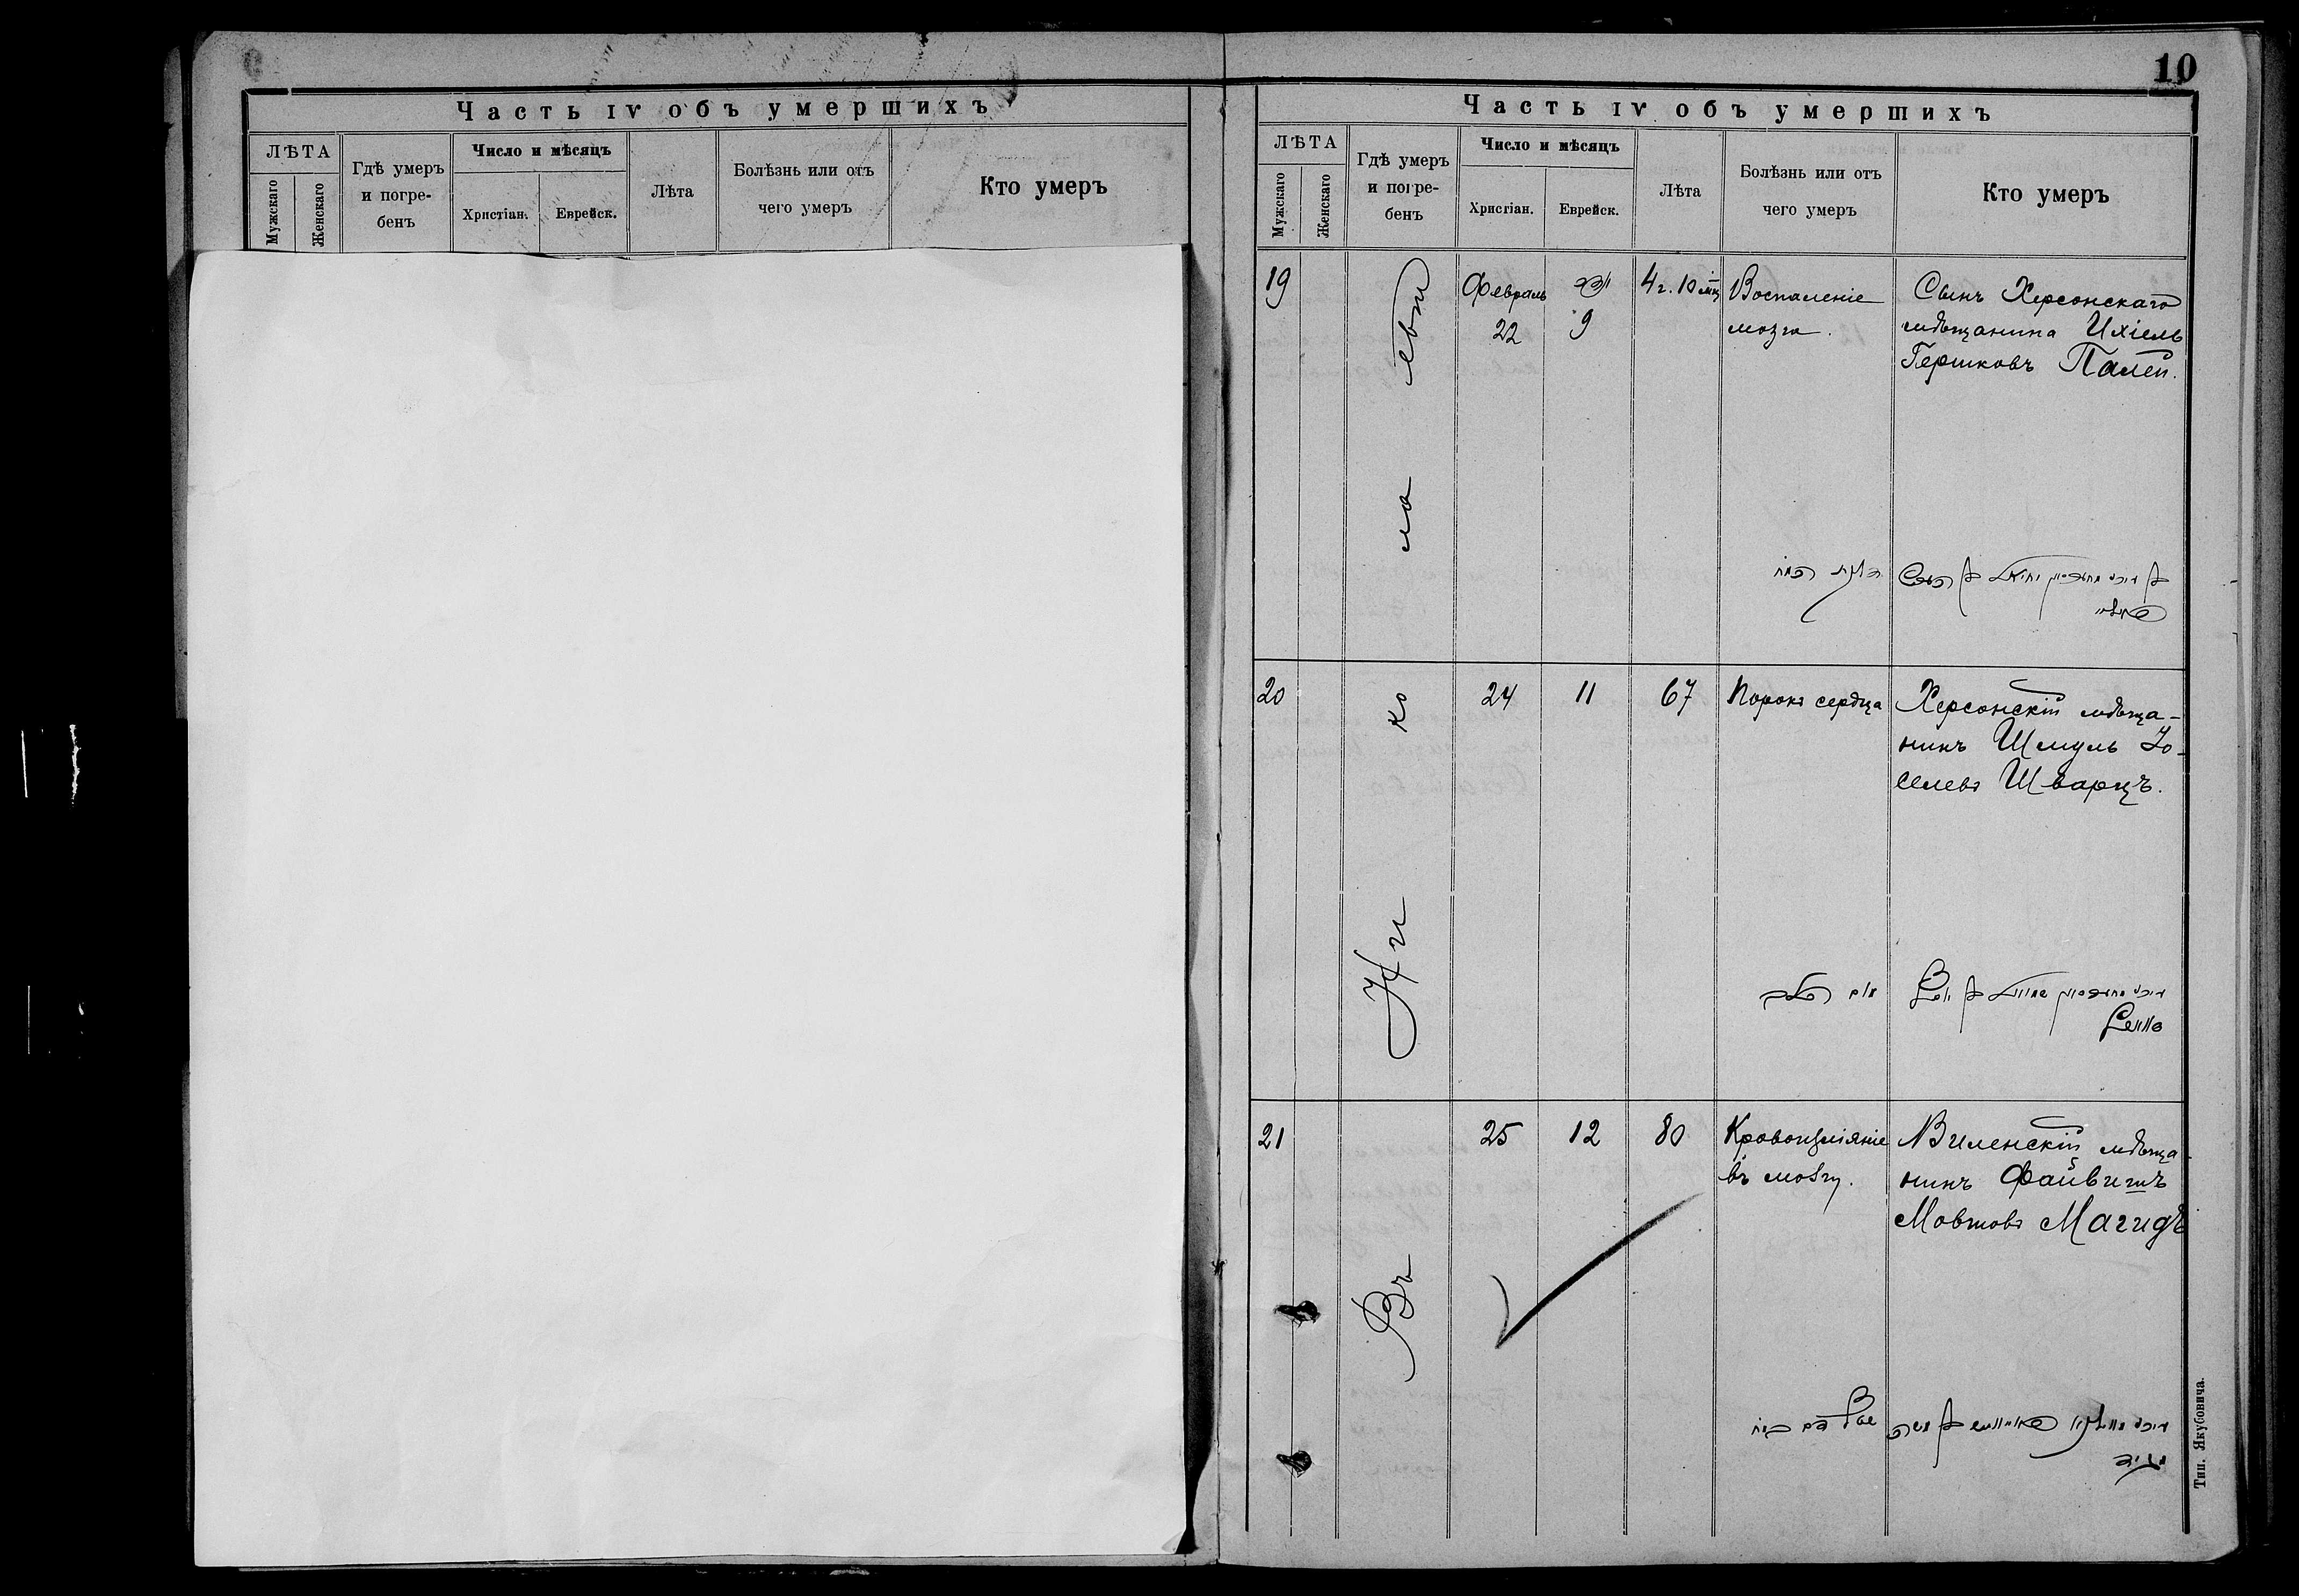 10
Часть IV объ умершихъ
ЛѢТА
Мужскаго
Женскаго
Гдѣ умеръ
и погре-
бенъ
Число и мѣсяцъ
Христіан.
Еврейск.
Лѣта
Болѣзнь или отъ
чего умеръ
Кто умеръ
Часть IV объ умершихъ
ЛѢТА
Мужскаго
Женскаго
Гдѣ умеръ
и погре-
бенъ
Число и мѣсяцъ
Христіан.
Еврейск.
Лѣта
Болѣзнь или отъ
чего умеръ
Кто умеръ
Въ Николаевѣ
19
Февраль
22
9
4 г. 10 мц
Воспаленіе
мозга.
Сынъ Херсонскаго
мѣщанина Ихіель
Гершковъ Пален.
20
24
11
67
Порокъ сердца
Херсонскій мѣща-
нинъ Шмуль Іо-
селевъ Шварцъ.
21
25
12
80
Кровоизліяніе
въ мозгу.
Виленскій мѣща
нинъ Файвишъ
Мовшовъ Магидъ
Тип. Якубовича.